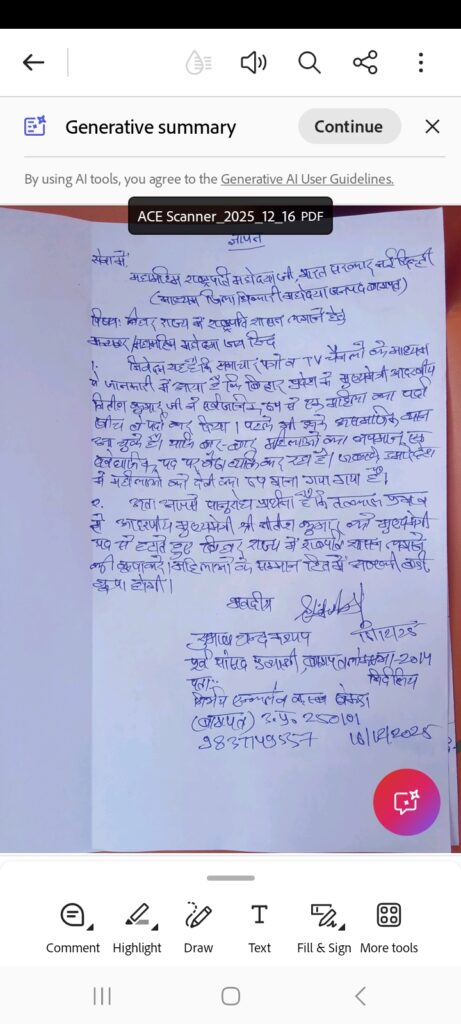 Generative summary
Continue
By using AI tools, you agree to the Generative AI User Guidelines.
ACE Scanner_2025_12_16 PDF
ज्ञापन
सेवा में,
महामहिम राष्ट्रपति महोदया जी, भारत सरकार नई दिल्ली
(माध्यम जिलाधिकारी महोदया जनपद बागपत)
विषय: बिहार राज्य में राष्ट्रपति शासन लगाने हेतु
महोदया जय हिन्द
1. निवेदन यह है कि समाचार पत्रों व TV चैनलों के माध्यम
से जानकारी में आया है कि बिहार प्रदेश के मुख्यमंत्री आदरणीय
नितीश कुमार जी ने सार्वजनिक रूप से एक महिला का पर्दा
पहले भी
चुके हैं। बार-बार महिलाओं का अपमान एक
संवैधानिक पद पर बैठा व्यक्ति कर रहा है। जबकि हमारे देश
में महिलाओं को देवी का रूप माना गया है।
2. अतः आपसे सानुरोध प्रार्थना है कि तत्काल प्रभाव
से आदरणीय मुख्यमंत्री श्री नीतीश कुमार को मुख्यमंत्री
पद से हटाते हुए बिहार राज्य में राष्ट्रपति शासन लगाने
की कृपा करें। महिलाओं के सम्मान हित में आपकी बड़ी
कृपा होगी।
भवदीय
सुभाष चन्द कश्यप 16/12/25
पूर्व सांसद प्रत्याशी, बागपत लोकसभा-2014
पता:- निर्दलीय
(बागपत) उ.प्र. 250101
9837149557 16/12/2025
Comment
Highlight
Draw
Text
Fill & Sign
More tools